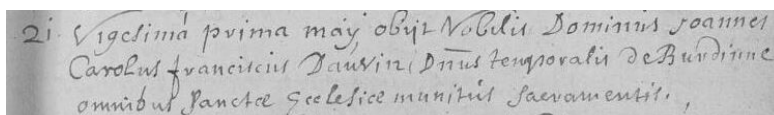 21. Vigesimâ prima maÿ obijt Nobilis Dominus Joannes
Carolus franciscus Dauvin, Dn̄us temporalis de Burdinne
omnibus Sanctæ Ecclesiæ munitus sacramentis.